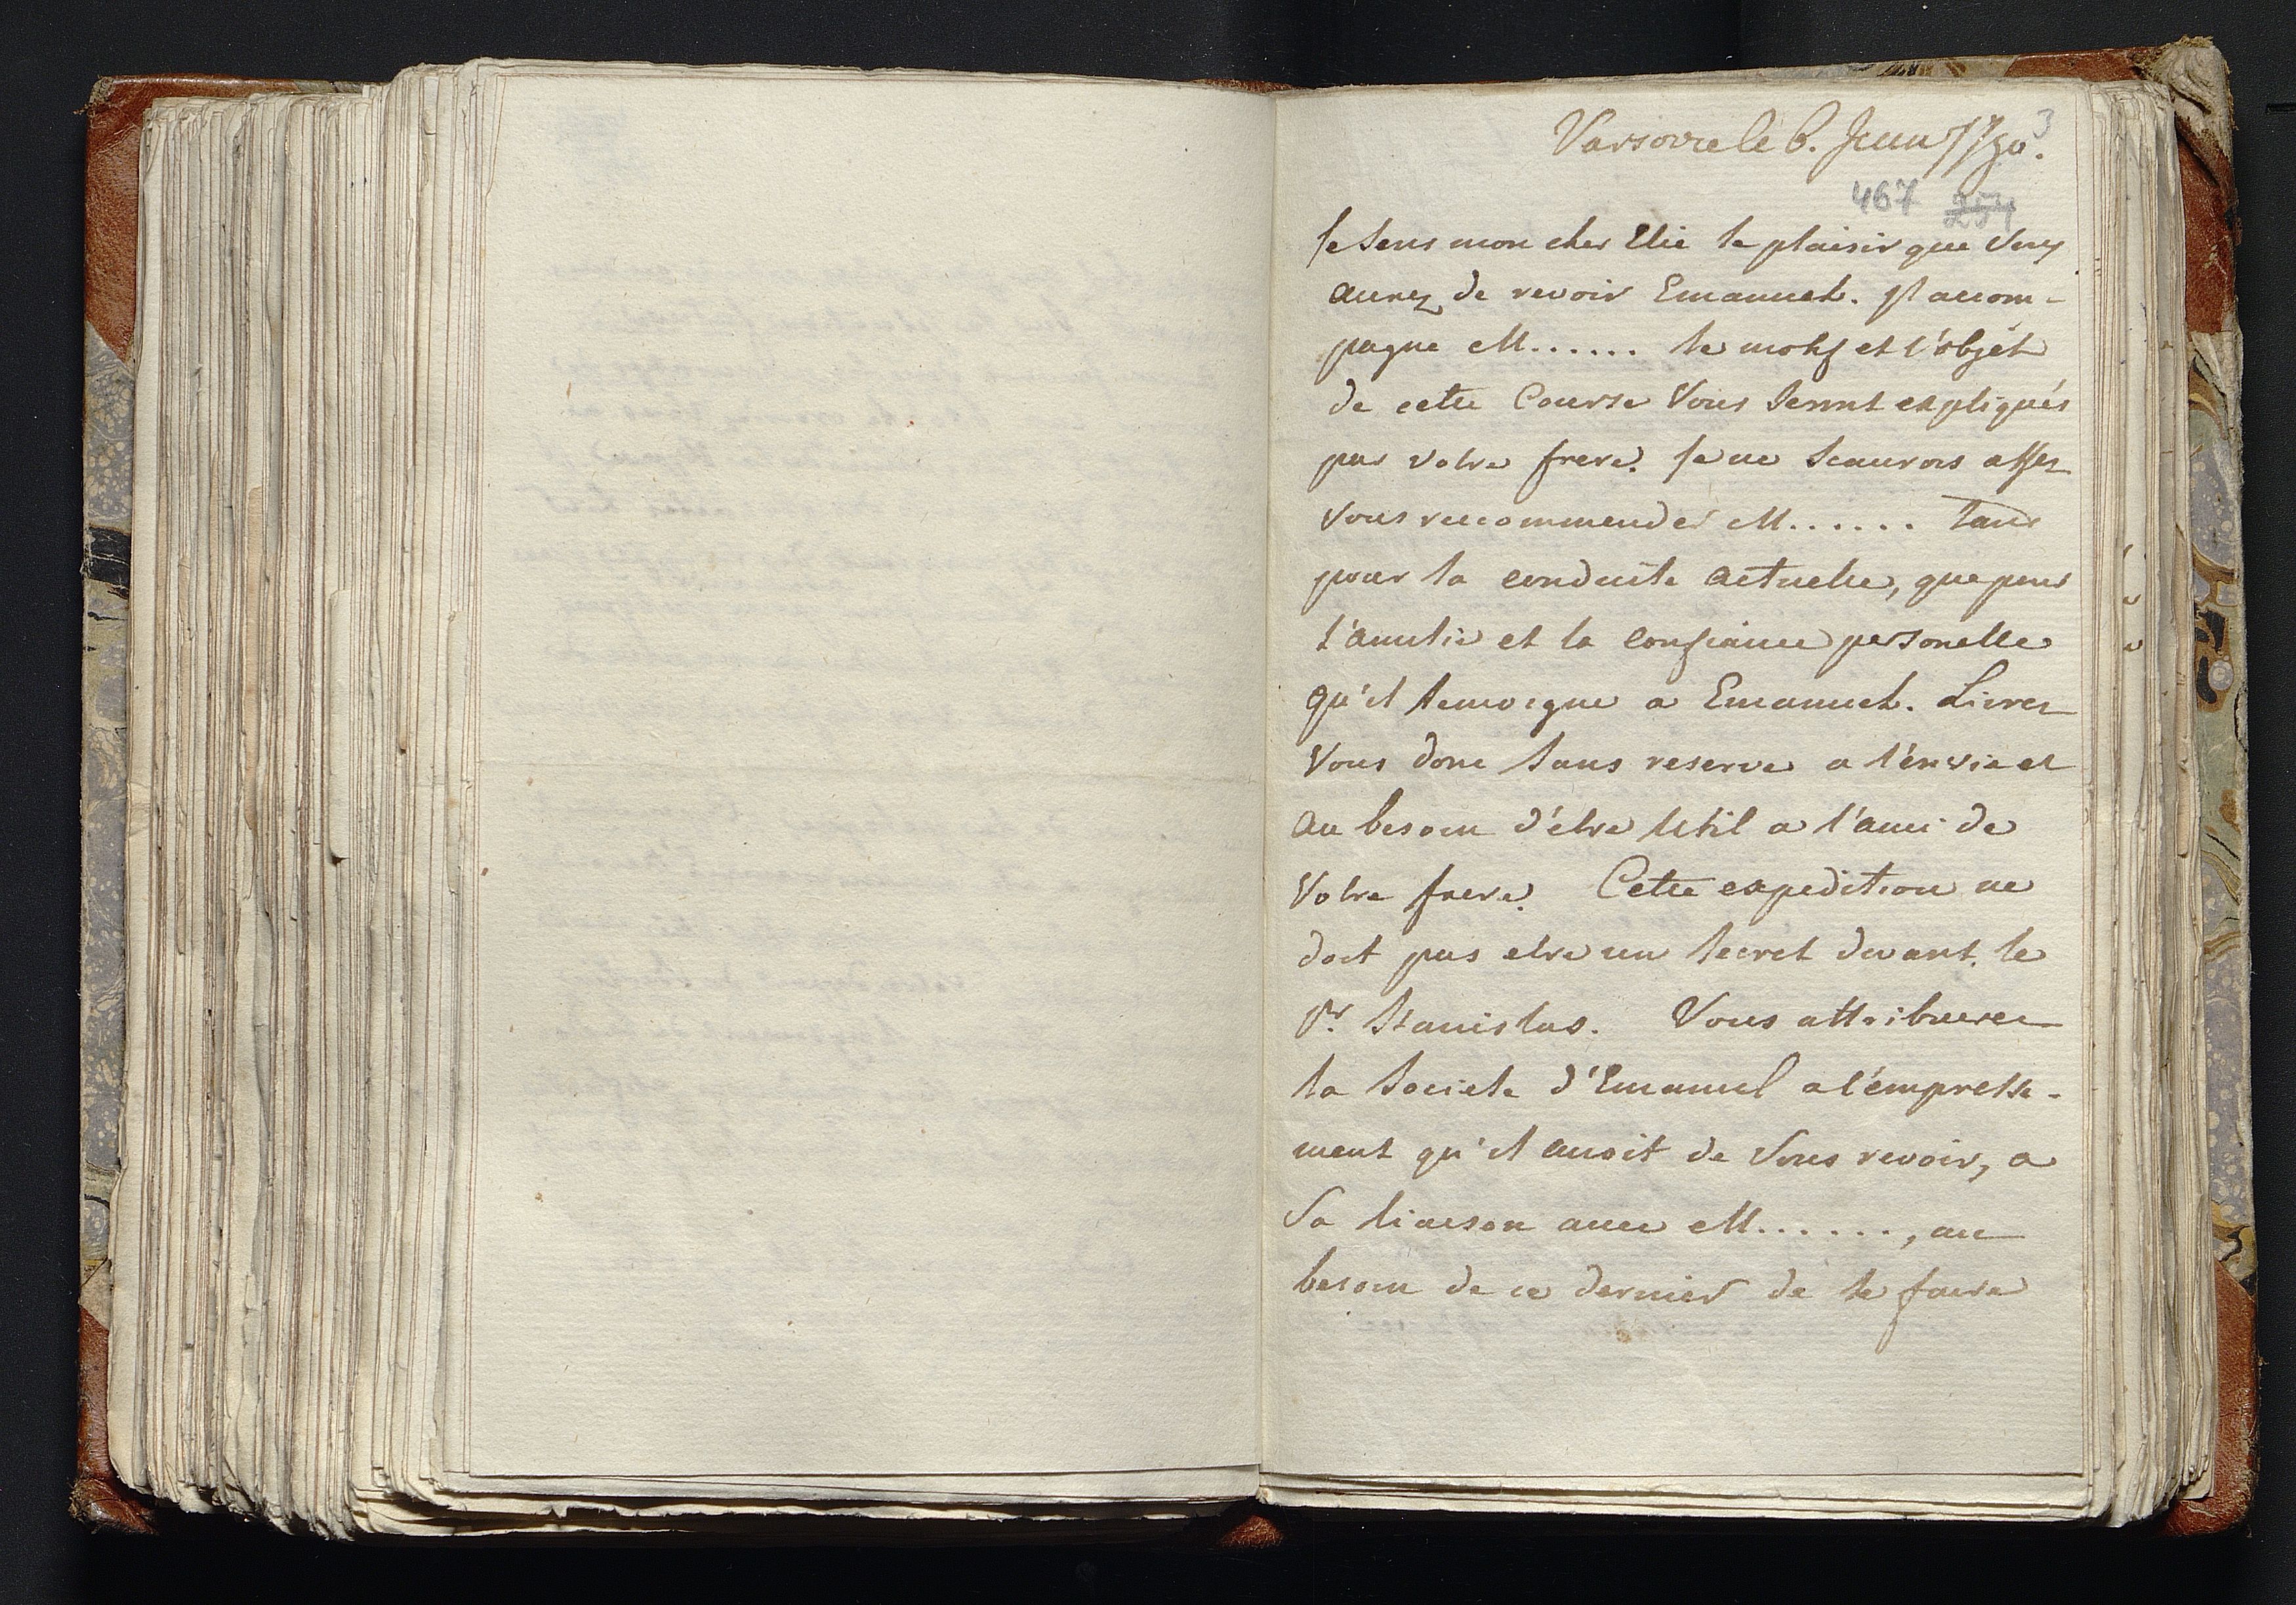 3
Varsovie le 6. Juin 1790.
467 254
Je sens mon cher Elie le plaisir que Vous
aurez de revoir Emanuel. Il accom-
pagne M...... le motif et l'objèt
de cette Course Vous seront expliqués
par votre frere. Je ne scaurois assez
Vous recommender M...... tant
pour sa conduite actuelle, que pour
l'amitié et la confiance personelle
qu'il temoigne a Emanuel. Livrez
Vous donc sans reserve a l'énvie et
au besoin d'être Util a l'ami de
Votre frere. Cette expedition ne
doit pas etre un secret devant le
Pr. Stanislas. Vous attribuerez
la societe d'Emanuel a l'émpresse-
ment qu'il avoit de Vous revoir, a
Sa liaison avec M......, au
besoin de ce dernier de se faire